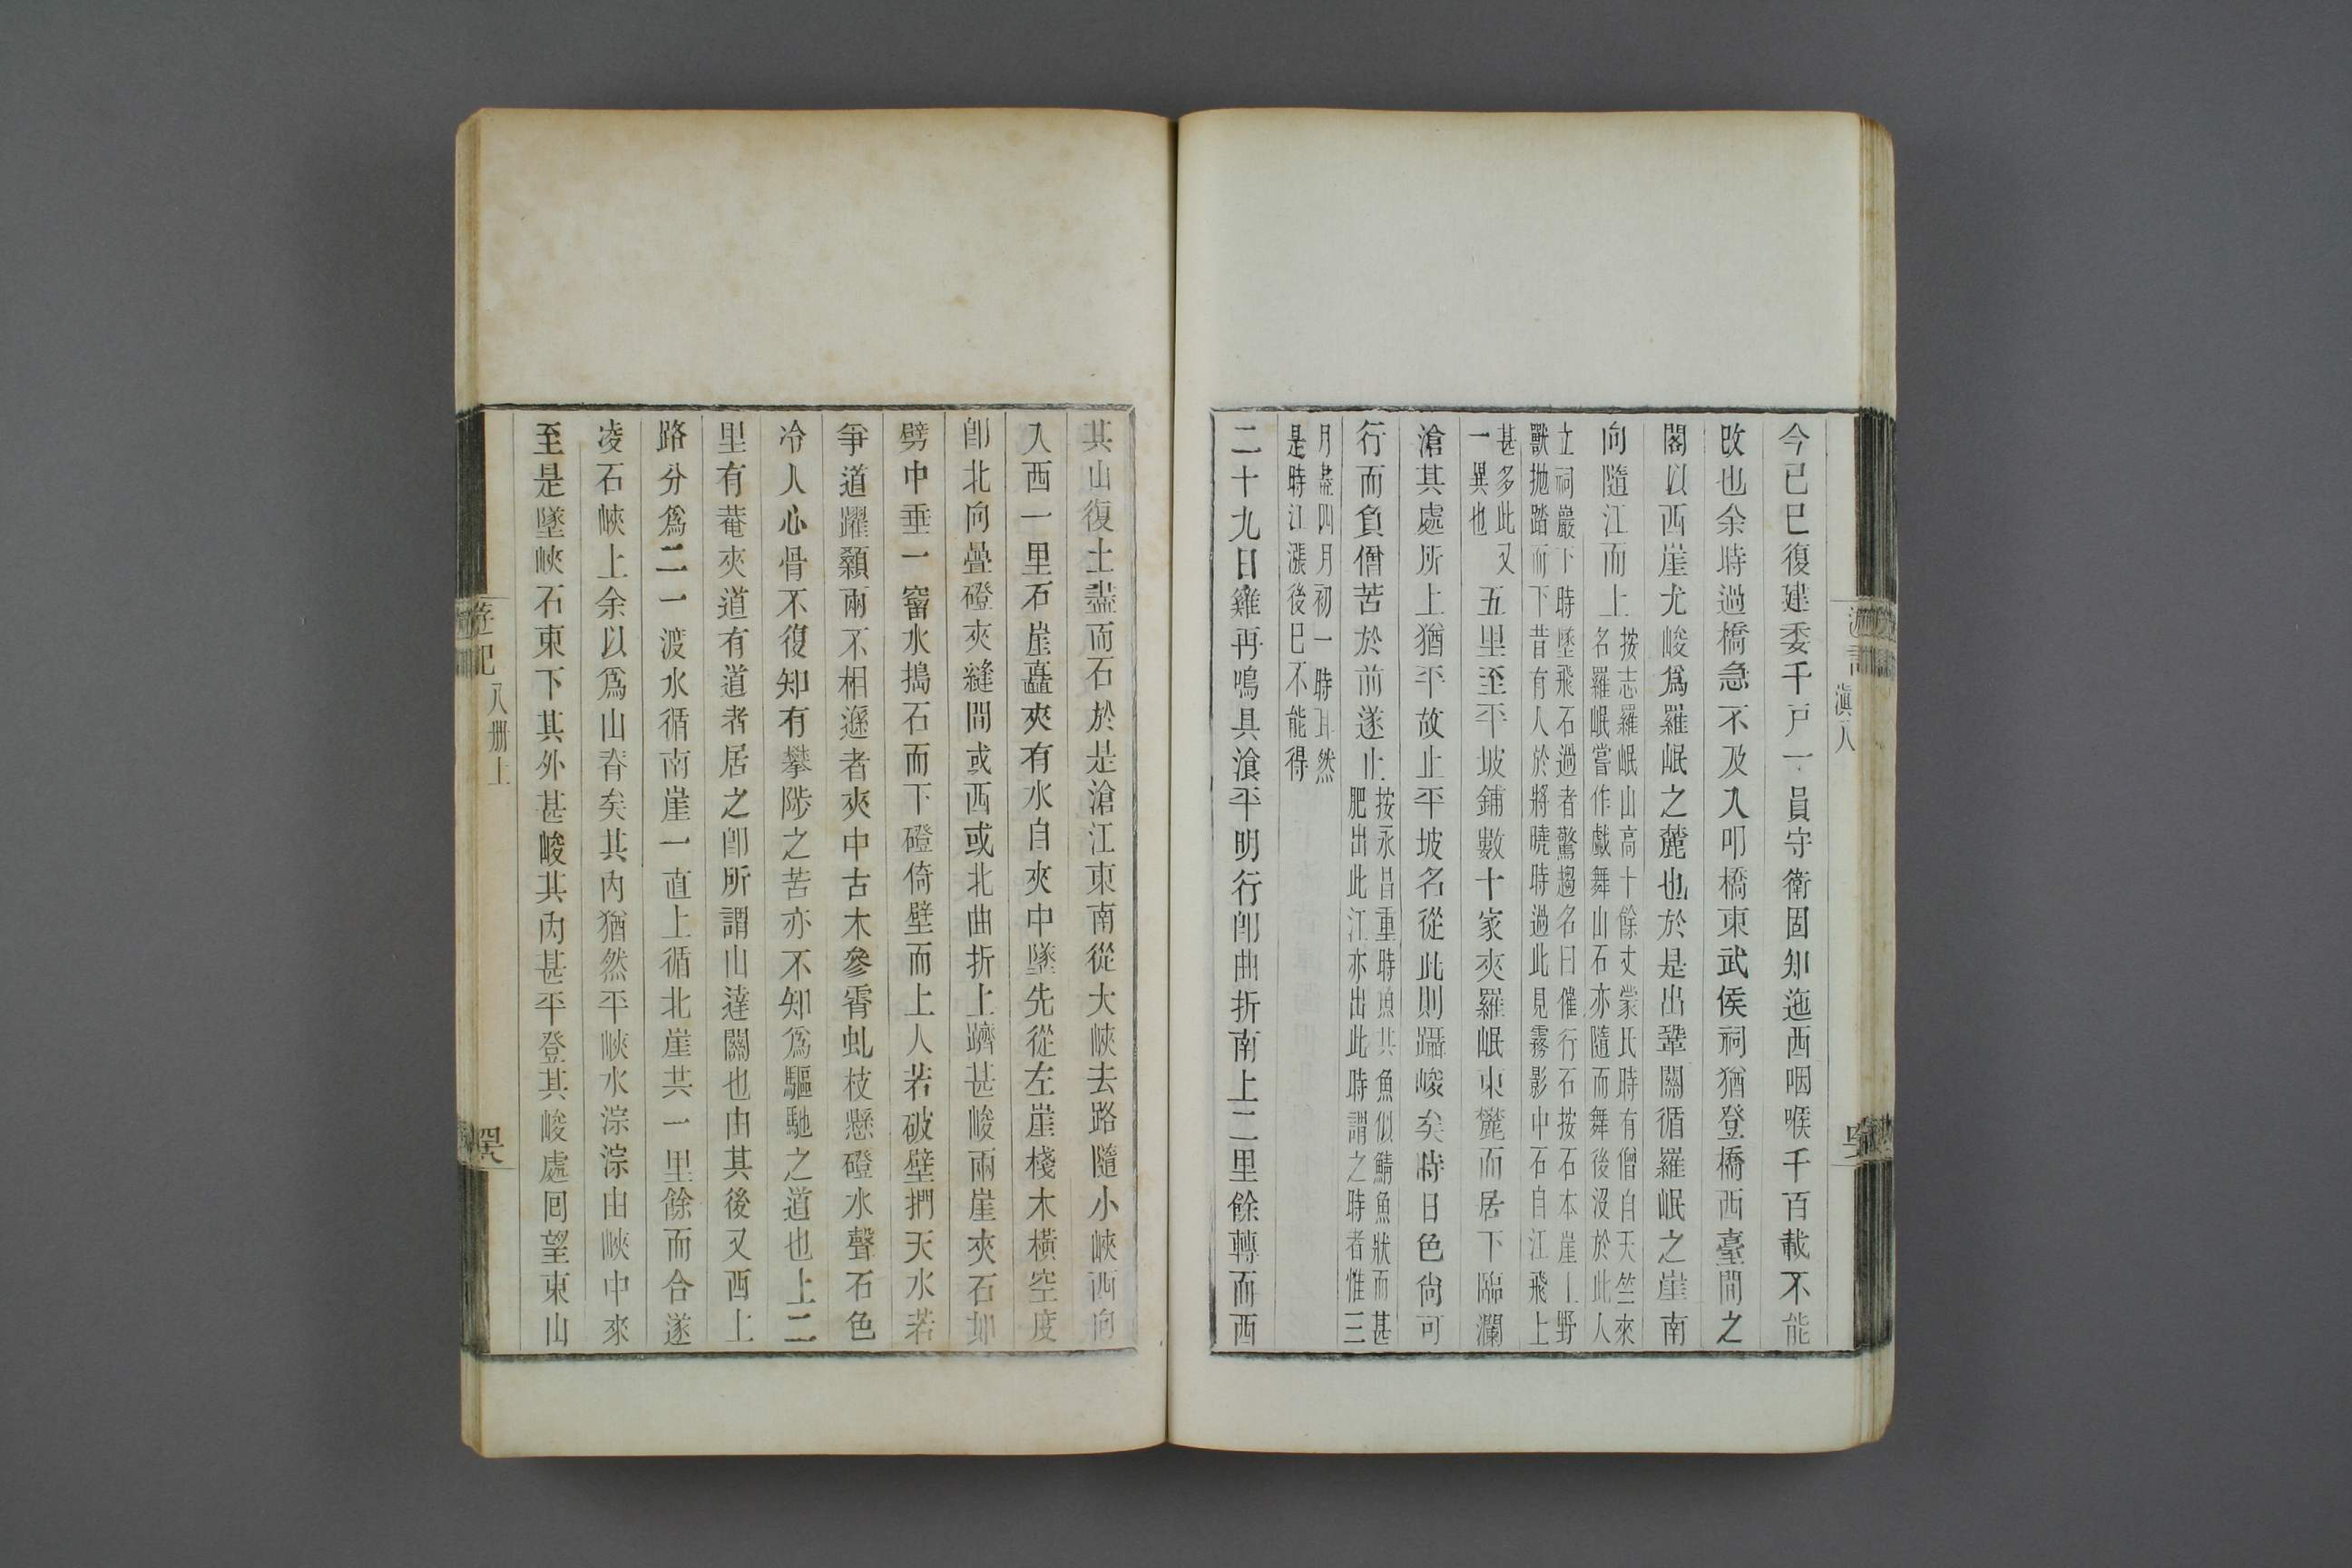 滇八
今已巳復建委千戸一員守衛固知迤西咽喉千百載不能
改也余時過橋急不及入叩橋東武侯祠猶登橋西臺間之
閣以西崖尤峻爲羅岷之麓也於是出鞏關循羅岷之崖南
向隨江而上按志羅岷山高十餘丈蒙氏時有僧自天竺來
名羅岷嘗作戲舞山石亦隨而舞後沒於此人
立祠巖下時墜飛石過者驚趨名曰催行石按石本崖上野
獸拋踏而下昔有人於將曉時過此見霧影中石自江飛上
甚多此又
一異也
五里至平坡鋪數十家夾羅岷東麓而居下臨瀾
滄其處所上猶平故止平坡名從此則躡峻矣時日色尙可
行而負僧苦於前遂止按永昌重時魚其魚似鯖魚狀而甚
肥出此江亦出此時謂之時者惟三
月盡四月初一時耳然
是時江漲後已不能得
二十九日雞再鳴具飡平明行卽曲折南上二里餘轉而西
其山復土盡而石於是滄江東南從大峽去路隨小峽西向
入西一里石崖矗夾有水自夾中墜先從左崖棧木橫空度
卽北向疊磴夾縫間或西或北曲折上躋甚峻兩崖夾石如
劈中垂一霤水搗石而下磴倚壁而上人若破壁捫天水若
爭道躍顙兩不相遜者夾中古木參霄虬枝懸磴水聲石色
冷人心骨不復知有攀陟之苦亦不知爲驅馳之道也上二
里有菴夾道有道者居之卽所謂山達關也由其後又西上
路分爲二一渡水循南崖一直上循北崖共一里餘而合遂
凌石峽上余以爲山脊矣其內猶然平峽水淙淙由峽中來
至是墜峽石東下其外甚峻其內甚平登其峻處囘望東山
遊記 八册上